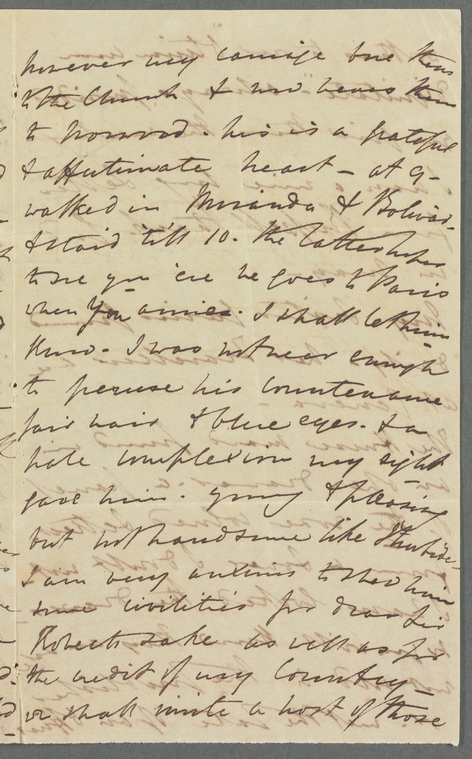 however my carriage bore them
to the Church & now bears them
to    his is a grateful
& affectionate heart - at 9 -
walked in Miranda & Bolivar -
& staid till 10. the latter wishes
to see you 'ere he goes to Paris
when you arrive. I shall let him
know - I was not near enough
to peruse his Countenance
fair hair & blue eyes. & a
pale complexion my sight
gave him. young & pleasing
but not handsome like Iturbide -
I am very anxious to shew him
some civilities for dear Sir
Roberts sake as well as for
the credit of my Country -
or shall invite a host of those